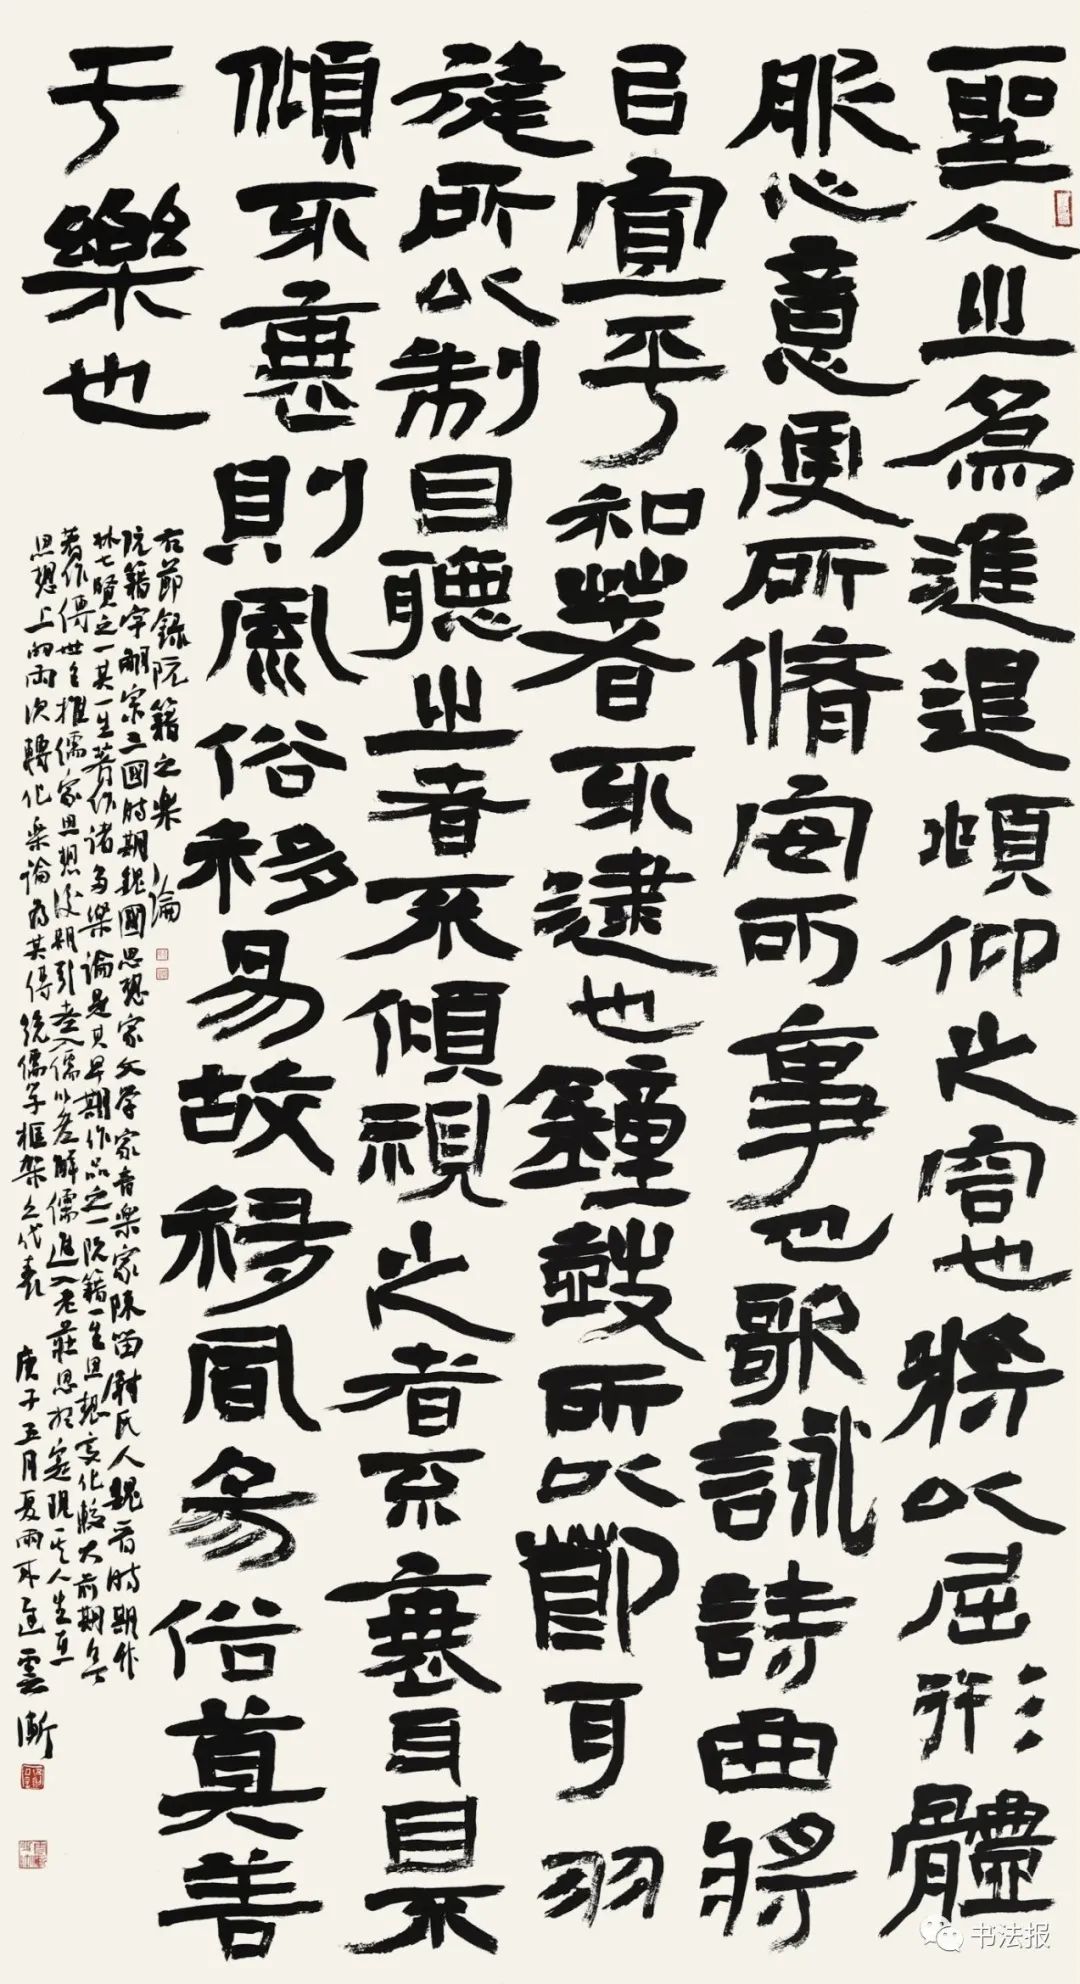 聖人之為進退頫仰之容也將以屈形體
服心意便所脩安所事也歌詠詩曲將
以宣平和著不逮也鐘鼓所以節耳羽
旄所以制目聽之者不傾視之者不衰耳目不
傾不衰則風俗移易故移風易俗莫善
于樂也
右節錄阮籍之樂論
阮籍字嗣宗三國時期魏國思想家文學家音樂家陳留尉氏人魏晉時期竹
林七賢之一其一生著作諸多樂論是其早期作品之一阮籍一生思想變化較大前期
著作傳世主推儒家思想後期引老入儒以老解儒進入老莊思想實現人生
思想上的兩次轉化樂論為其傳統儒學框架之代表 庚子五月夏雨雲漸
书法报